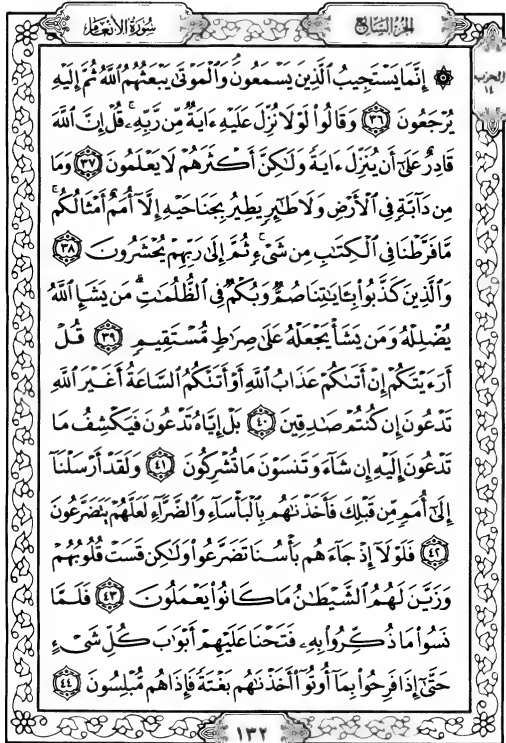 سُورَةُ الأَنْعَام
الجُزْءُ السَّابِع
الحِزب
١٤
۞ إِنَّمَا يَسْتَجِيبُ ٱلَّذِينَ يَسْمَعُونَۘ وَٱلْمَوْتَىٰ يَبْعَثُهُمُ ٱللَّهُ ثُمَّ إِلَيْهِ
يُرْجَعُونَ ٣٦ وَقَالُوا۟ لَوْلَا نُزِّلَ عَلَيْهِ ءَايَةٌ مِّن رَّبِّهِۦۚ قُلْ إِنَّ ٱللَّهَ
قَادِرٌ عَلَىٰٓ أَن يُنَزِّلَ ءَايَةً وَلَٰكِنَّ أَكْثَرَهُمْ لَا يَعْلَمُونَ ٣٧ وَمَا
مِن دَآبَّةٍ فِى ٱلْأَرْضِ وَلَا طَٰٓئِرٍ يَطِيرُ بِجَنَاحَيْهِ إِلَّآ أُمَمٌ أَمْثَالُكُمۚ
مَّا فَرَّطْنَا فِى ٱلْكِتَٰبِ مِن شَىْءٍۚ ثُمَّ إِلَىٰ رَبِّهِمْ يُحْشَرُونَ ٣٨
وَٱلَّذِينَ كَذَّبُوا۟ بِـَٔايَٰتِنَا صُمٌّ وَبُكْمٌ فِى ٱلظُّلُمَٰتِۗ مَن يَشَإِ ٱللَّهُ
يُضْلِلْهُ وَمَن يَشَأْ يَجْعَلْهُ عَلَىٰ صِرَٰطٍ مُّسْتَقِيمٍ ٣٩ قُلْ
أَرَءَيْتَكُمْ إِنْ أَتَىٰكُمْ عَذَابُ ٱللَّهِ أَوْ أَتَتْكُمُ ٱلسَّاعَةُ أَغَيْرَ ٱللَّهِ
تَدْعُونَ إِن كُنتُمْ صَٰدِقِينَ ٤٠ بَلْ إِيَّاهُ تَدْعُونَ فَيَكْشِفُ مَا
تَدْعُونَ إِلَيْهِ إِن شَآءَ وَتَنسَوْنَ مَا تُشْرِكُونَ ٤١ وَلَقَدْ أَرْسَلْنَآ
إِلَىٰٓ أُمَمٍ مِّن قَبْلِكَ فَأَخَذْنَٰهُم بِٱلْبَأْسَآءِ وَٱلضَّرَّآءِ لَعَلَّهُمْ يَتَضَرَّعُونَ
٤٢ فَلَوْلَآ إِذْ جَآءَهُم بَأْسُنَا تَضَرَّعُوا۟ وَلَٰكِن قَسَتْ قُلُوبُهُمْ
وَزَيَّنَ لَهُمُ ٱلشَّيْطَٰنُ مَا كَانُوا۟ يَعْمَلُونَ ٤٣ فَلَمَّا
نَسُوا۟ مَا ذُكِّرُوا۟ بِهِۦ فَتَحْنَا عَلَيْهِمْ أَبْوَٰبَ كُلِّ شَىْءٍ
حَتَّىٰٓ إِذَا فَرِحُوا۟ بِمَآ أُوتُوٓا۟ أَخَذْنَٰهُم بَغْتَةً فَإِذَا هُم مُّبْلِسُونَ ٤٤
١٣٢